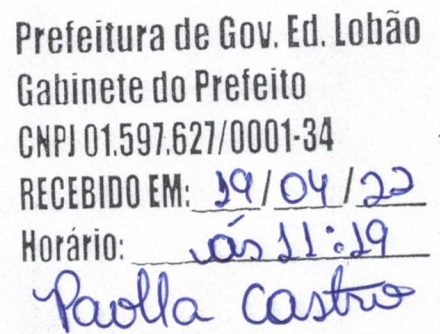 Prefeitura de Gov. Ed. Lobão
Gabinete do Prefeito
CNPJ 01.597.627/0001-34
RECEBIDO EM: 19/04/22
Horário: às 11:19
Paolla Castro